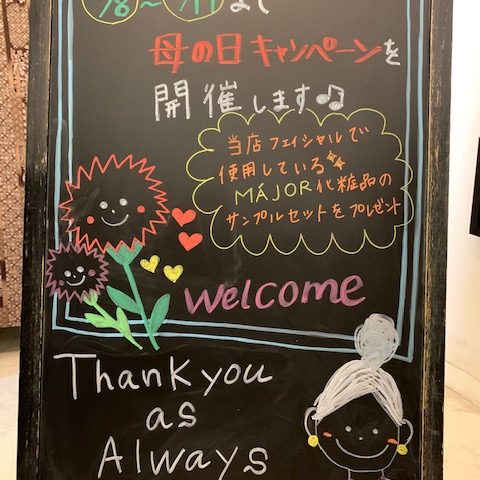 まで
母の日キャンペーンを
開催します♫
当店フェイシャルで
使用している
MÁJOR化粧品の
サンプルセットをプレゼント
welcome
Thank you
as
Always